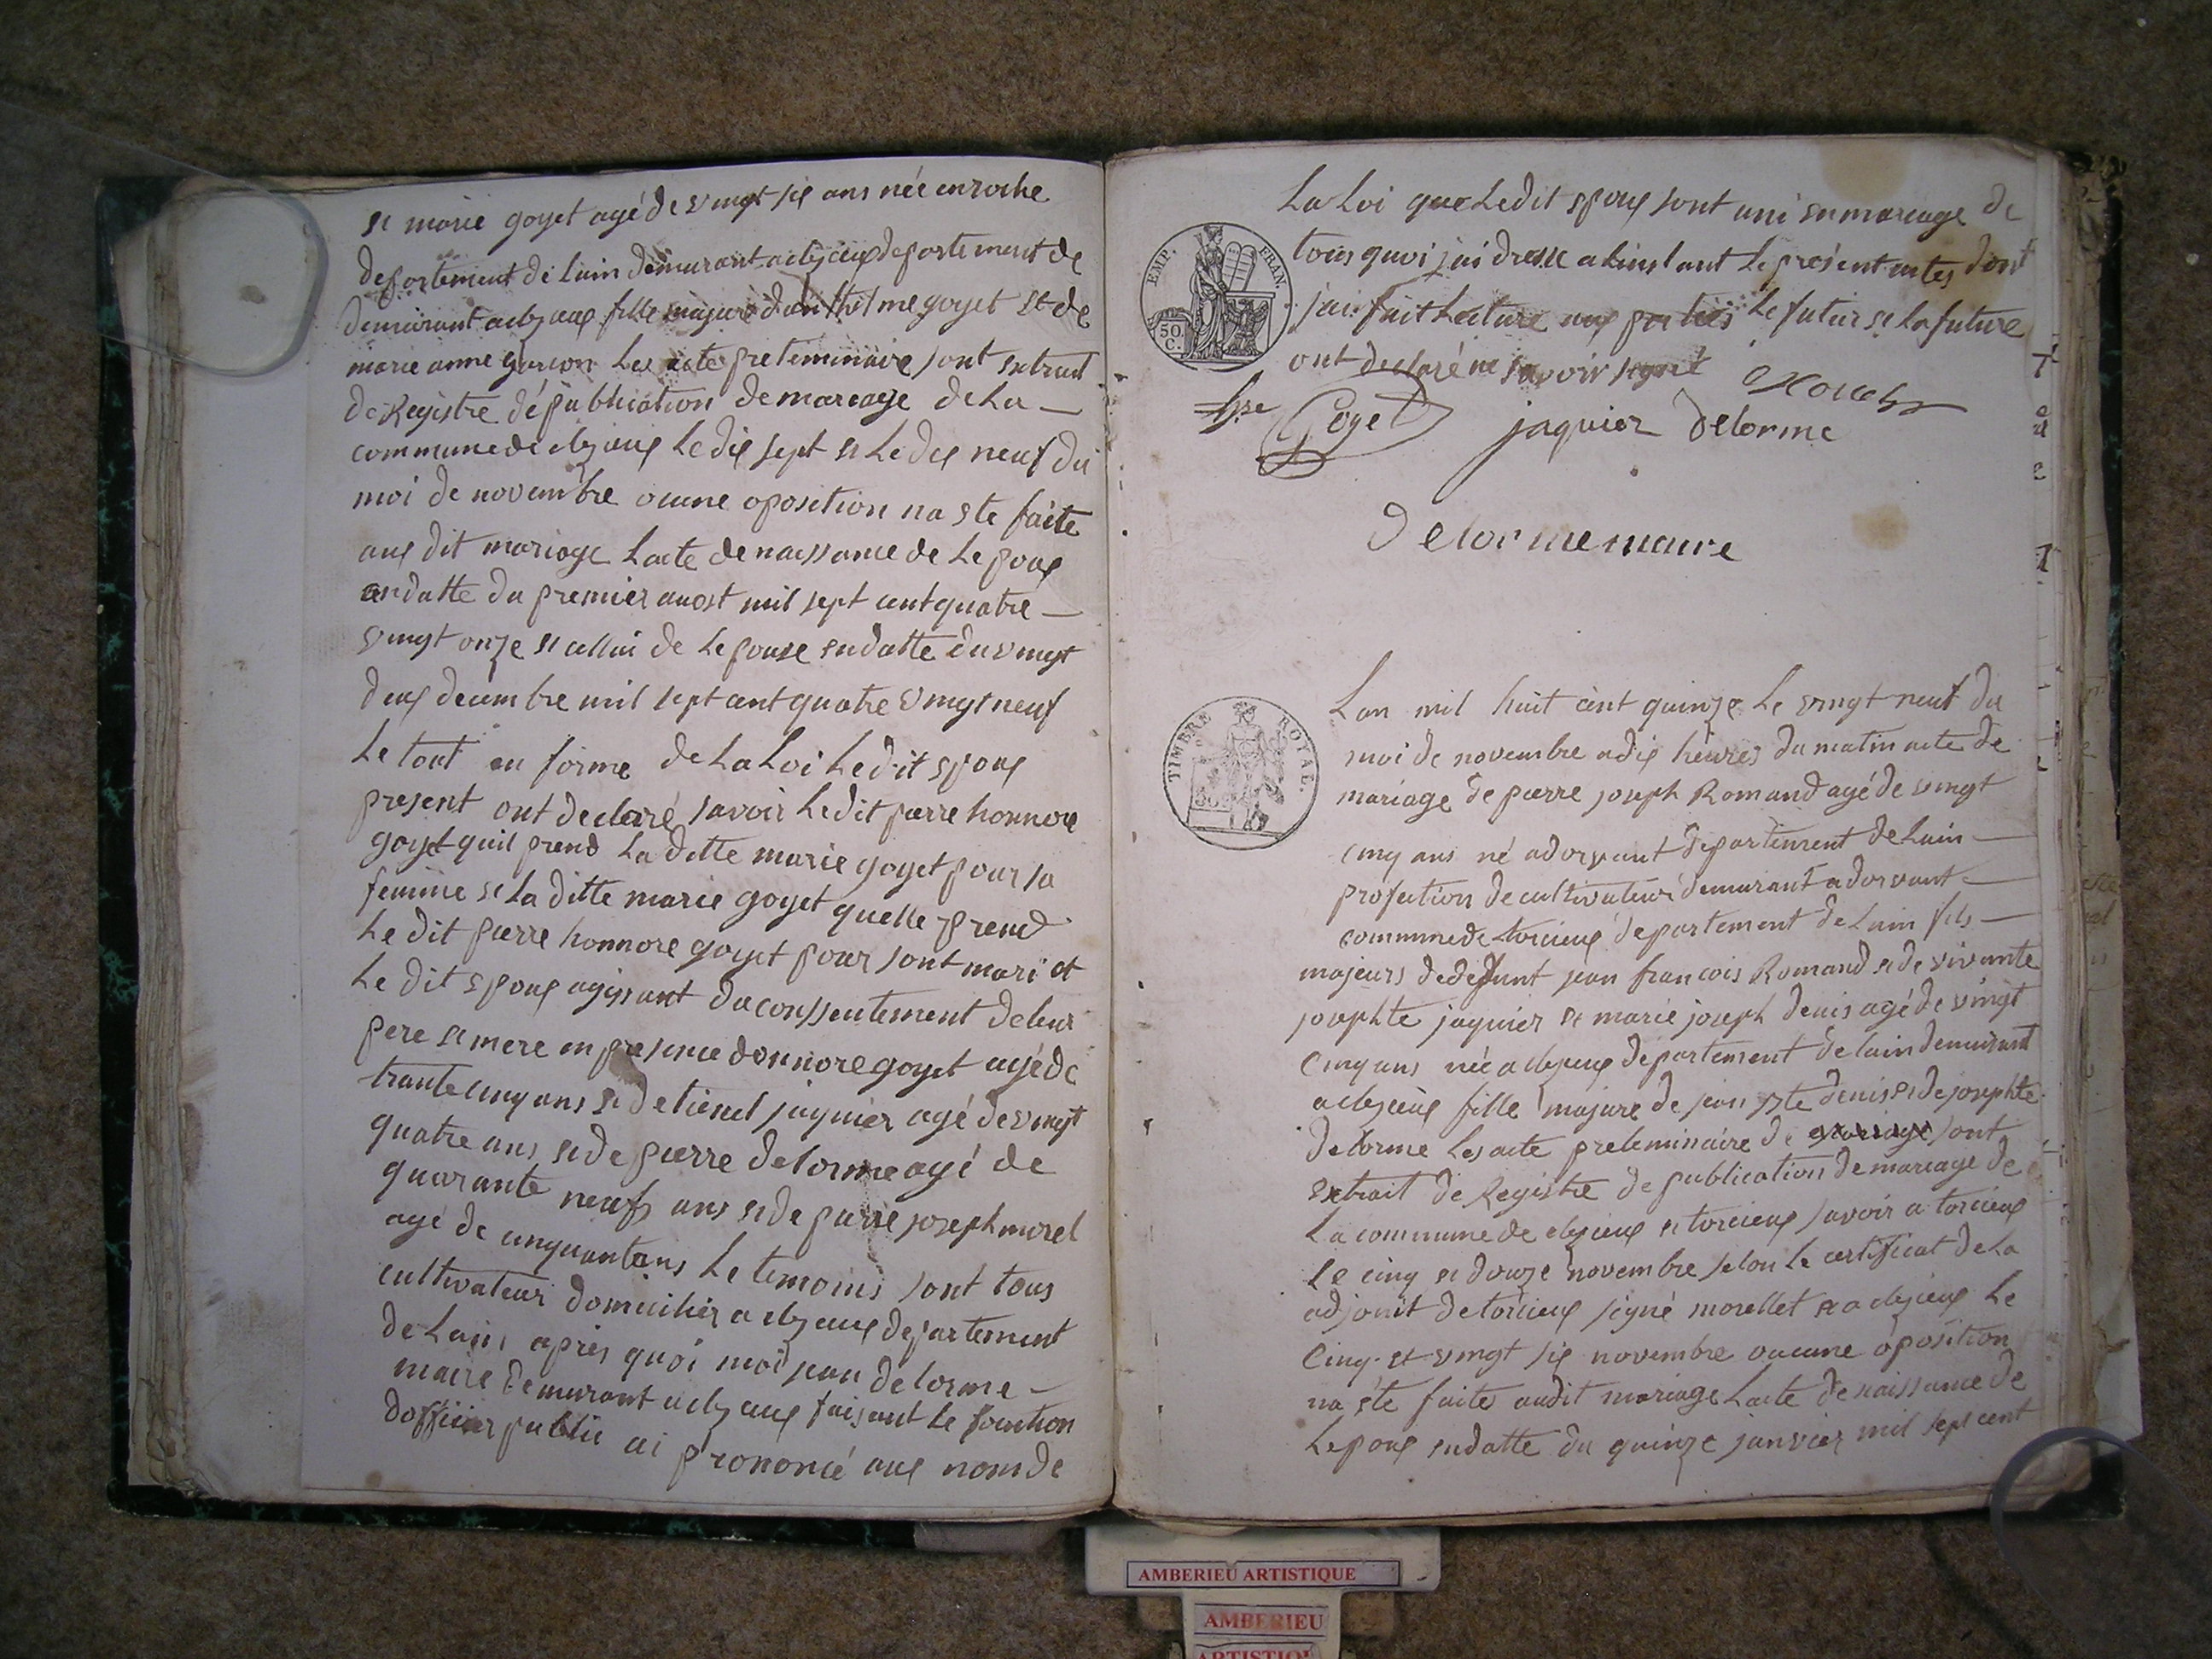 et marie goyet agé de vingt six ans née enroche
departement de lain demurant a clezieux departement de
demurant a clezieux fille majure danthelme goyet et de
marie anne garcon Les acte preleminaire sont extrait
de Registre dé publication de mariage de La
commune de clezieux Le dix sept et Le dix neuf du
moi de novembre ocune oposition na ete faite
aux dit mariage Lacte de naissance de Lepoux
en datte du premier auost mil sept cent quatre
vingt onze et cellui de Lepouse en datte du vingt
deux decembre mil sept cent quatre vingt neuf
Le tout en forme de La Loi Ledit epoux
present ont declaré savoir Ledit pierre honnore
goyet quil prend La ditte marie goyet pour sa
femme et La ditte marie goyet quelle prend
Le dit pierre honnore goyet pour sont mari et
Le dit epoux agissant du conssentement de leur
pere et mere en presence donnore goyet agé de
trante cinq ans et detienel jaquier agé de vingt
quatre ans et de pierre delorme agé de
quarante neufs ans et de pierre joseph morel
agé de cinquantans Le temoins sont tous
cultivateur domicilier a clezieux departement
de Lain apres quoi moi jean delorme
maire demurant a clezieux faisant Le fonction
dofficier public ai prononcé aux nom de
La Loi que Ledit epoux sont uni en mariage de
tous quoi jai dresse a linstant Le present actes dont
jai fait Lecture aux parties Le futur et La future
ont declaré ne savoir signé
EMP. FRAN.
50 C.
Goyet jaquier delorme
delorme maire
TIMBRE ROYAL.
Lan mil huit cent quinze Le vingt neuf du
moi de novembre a dix heures du matin acte de
mariage de pierre joseph Romand agé de vingt
cinq ans né a dorvant departement de Lain
profection de cultivateur demurant a dorvant
commune de torcieux departement de Lain fils
majeurs de defunt jean francois Romand et de vivante
josephte jaquier et marie joseph denis agé de vingt
cinq ans née a clezieux departement de lain demurant
a clezieux fille majure de jean bte denis et de josephte
delorme Les acte preleminaire de mariage sont
extrait de Registre de publication de mariage de
La commune de clezieux et torcieux savoir a torcieux
Le cinq et douze novembre selon Le certificat de La
adjouit de torcieux signé morellet et a clezieux Le
cinq et vingt six novembre oucune oposition
na éte faite audit mariage Lacte de naissance de
Lepoux en datte du quinze janvier mil sept cent
AMBERIEU ARTISTIQUE
AMBERIEU
ARTISTIQUE